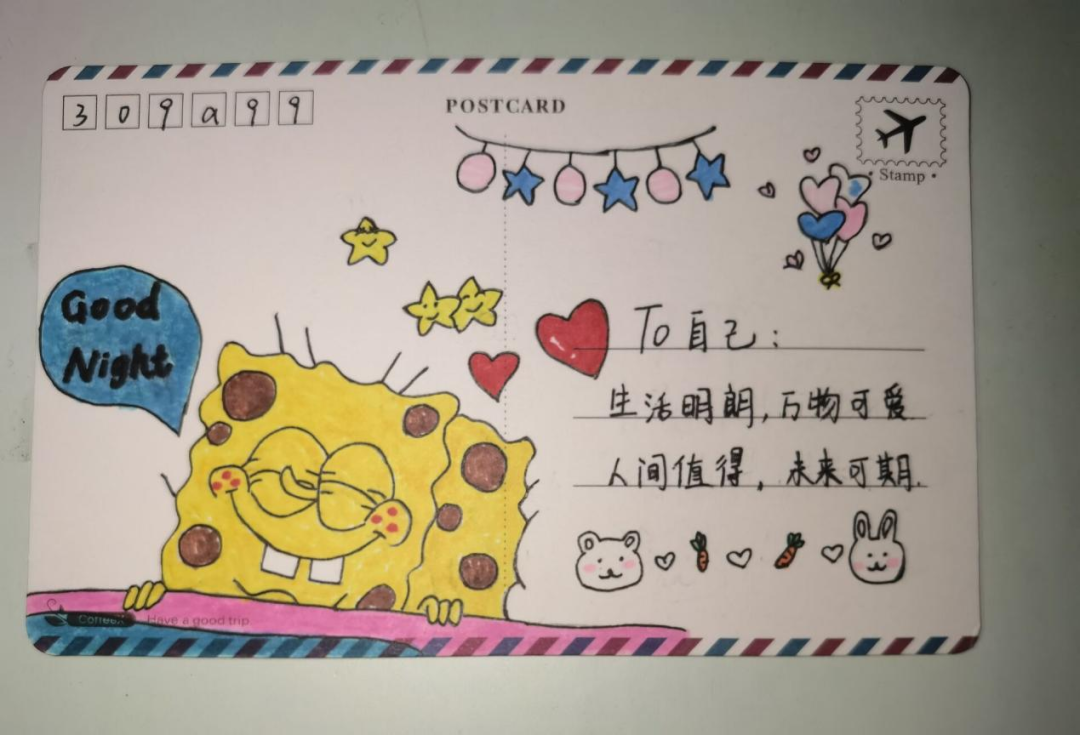 309a99
POSTCARD
Stamp
Good
Night
To自己:
生活明朗,万物可爱
人间值得,未来可期.
Have a good trip